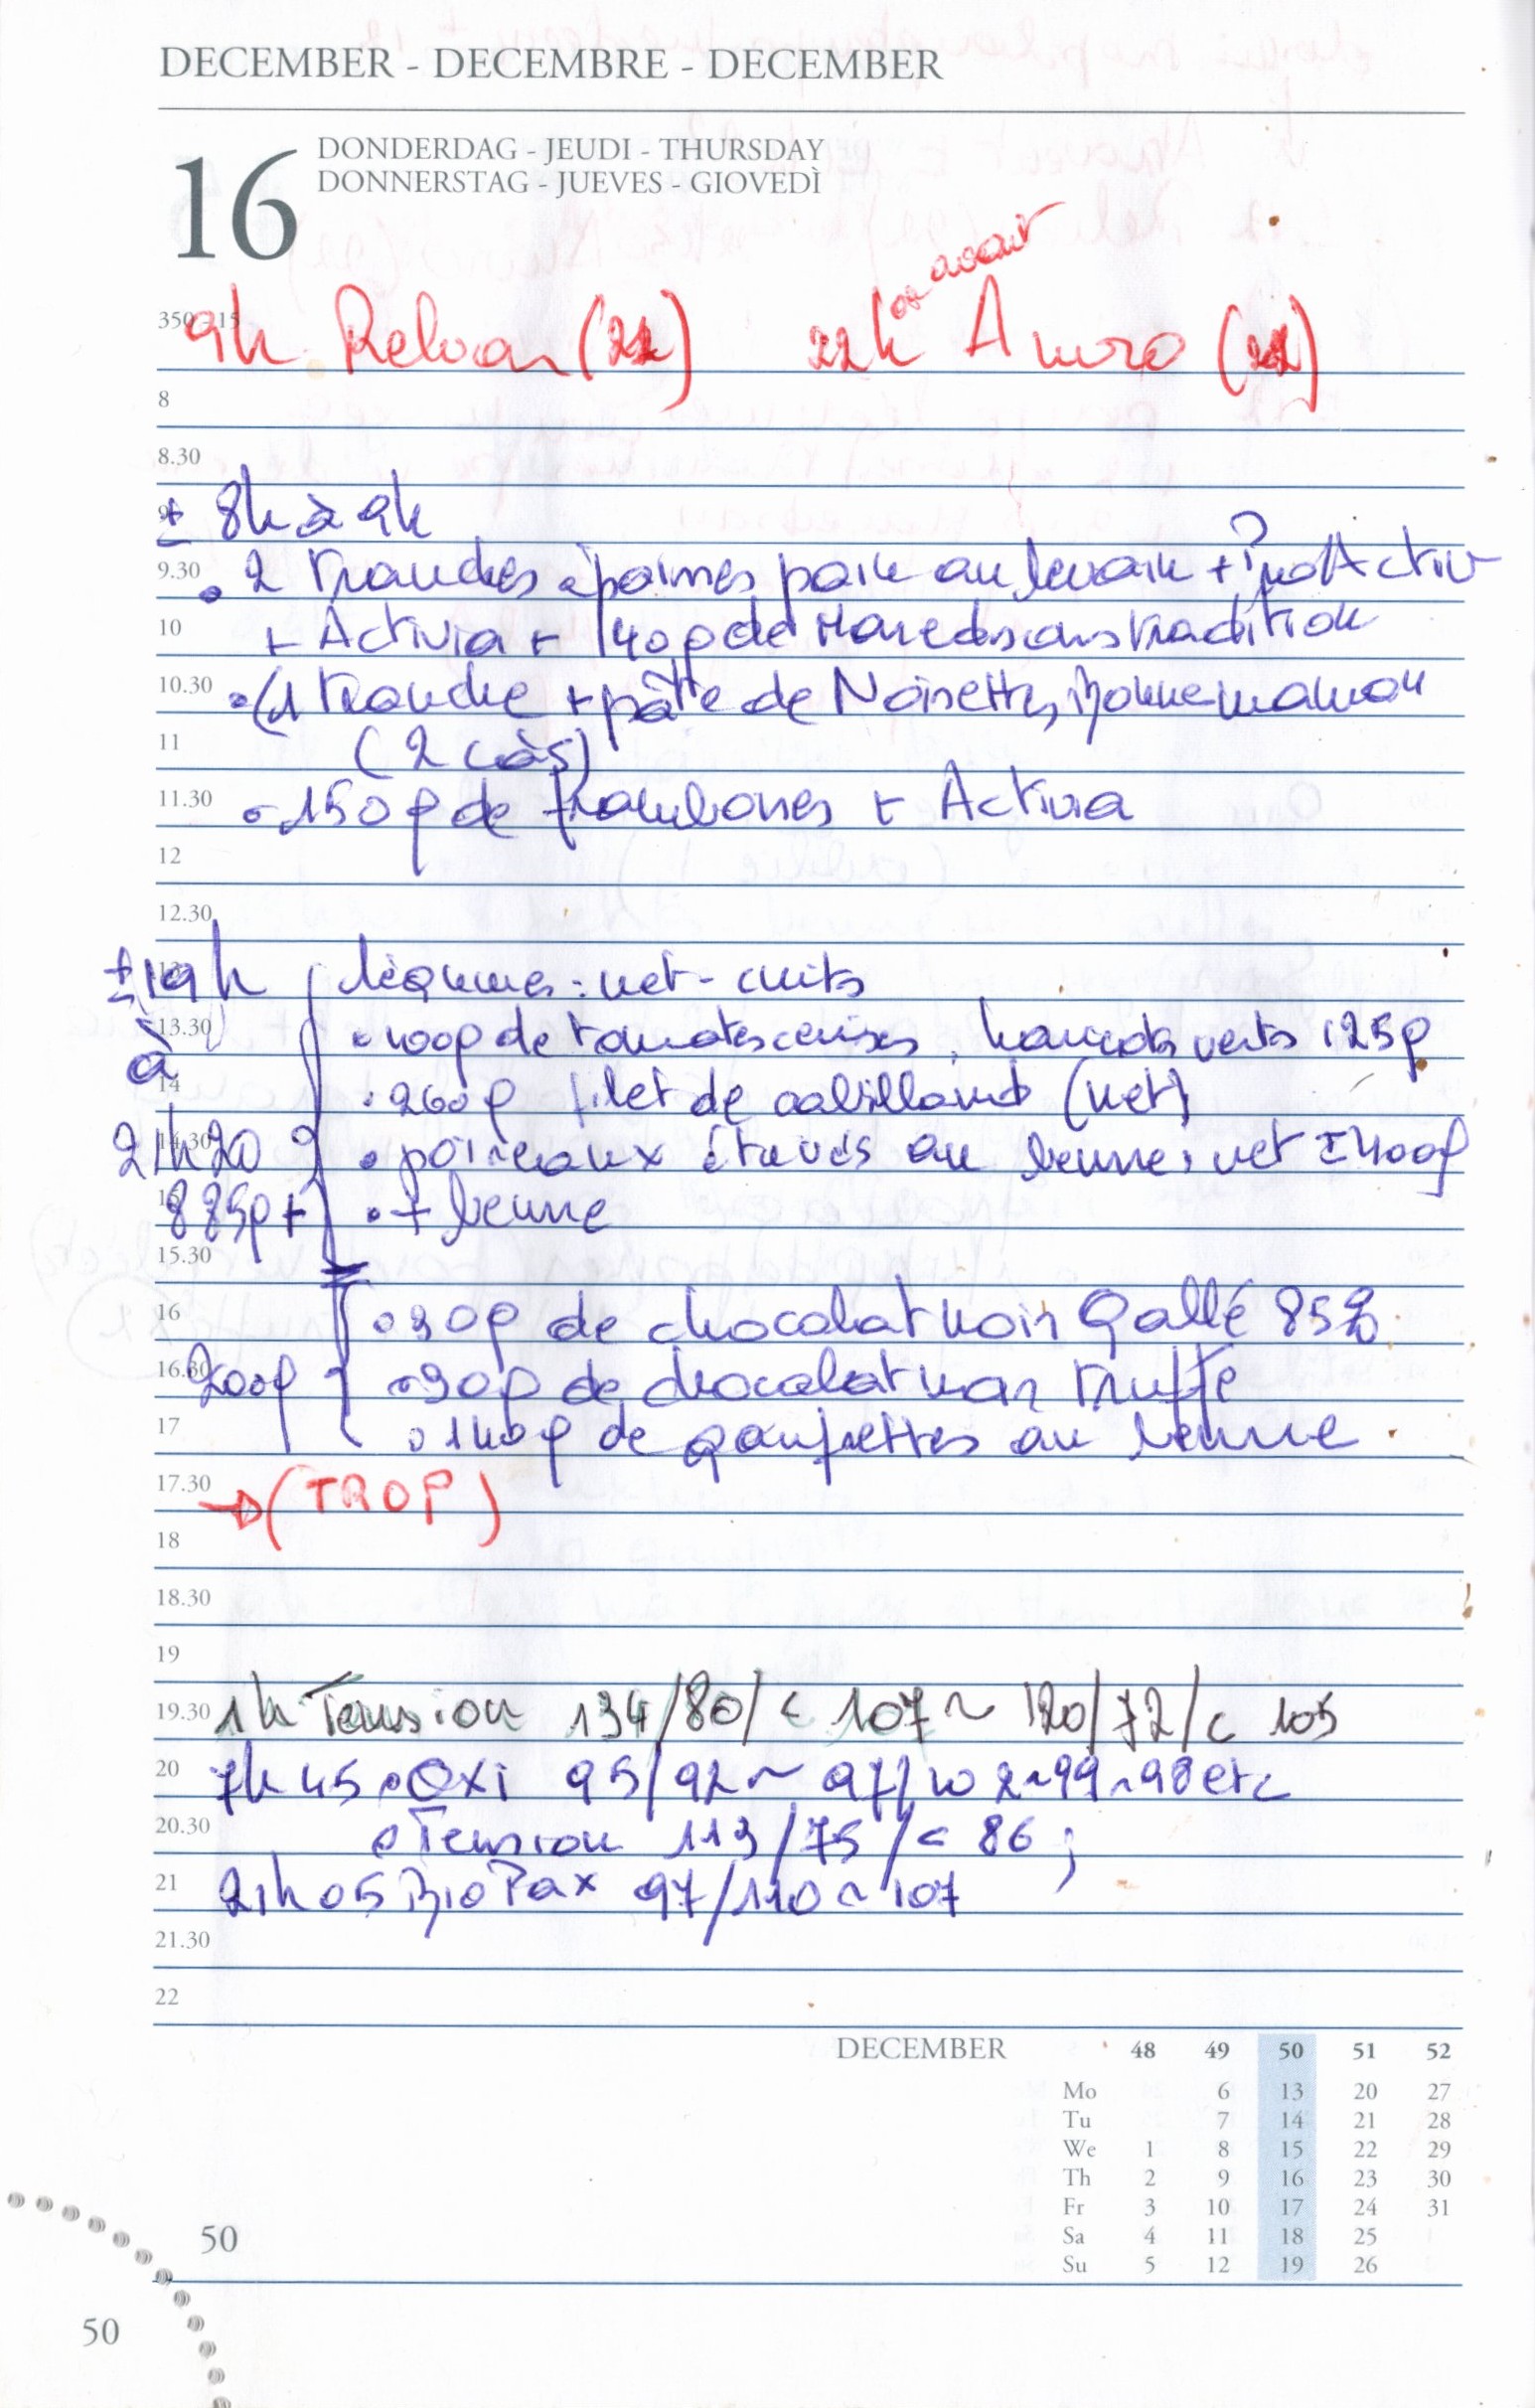 DECEMBER - DECEMBRE - DECEMBER
16
DONDERDAG - JEUDI - THURSDAY
DONNERSTAG - JUEVES - GIOVEDÌ
ou avant
350 - 15
9h Relvar (22) 22h Anoro (22)
8
8.30
9
± 8h à 9h
9.30
• 2 tranches épaisses pain au levain + ProActiv
10
+ Activia + 140g de Maredsous tradition
10.30
• (1 tranche + pâte de Noisettes Bonne maman
11
(2 càs)
11.30
• 150g de framboises + Activia
12
12.30
±19h légumes : net - cuits
13.30
à • 100g de tomates cerises, haricots verts 125g
14
• 260g filet de cabillaud (net)
14.30
21h20 • poireaux étuvés au beurre, net ± 400g
15
885g + • + beurre
15.30
16
• 30g de chocolat noir Gallé 85%
16.30
200g • 30g de chocolat noir truffe
17
• 140g de gaufrettes au beurre
17.30
→ (TROP)
18
18.30
19
19.30
1h Tension 134/80/c 107 ~ 120/72/c 105
20
7h45 • Oxi 95/92 ~ 97/102 ~ 99 ~ 98 etc
20.30
• Tension 113/75/c 86 ;
21
21h05 BioPax 97/110 ~ 107
21.30
22
DECEMBER 48 49 50 51 52
Mo 6 13 20 27
Tu 7 14 21 28
We 1 8 15 22 29
Th 2 9 16 23 30
Fr 3 10 17 24 31
Sa 4 11 18 25
Su 5 12 19 26
50
50